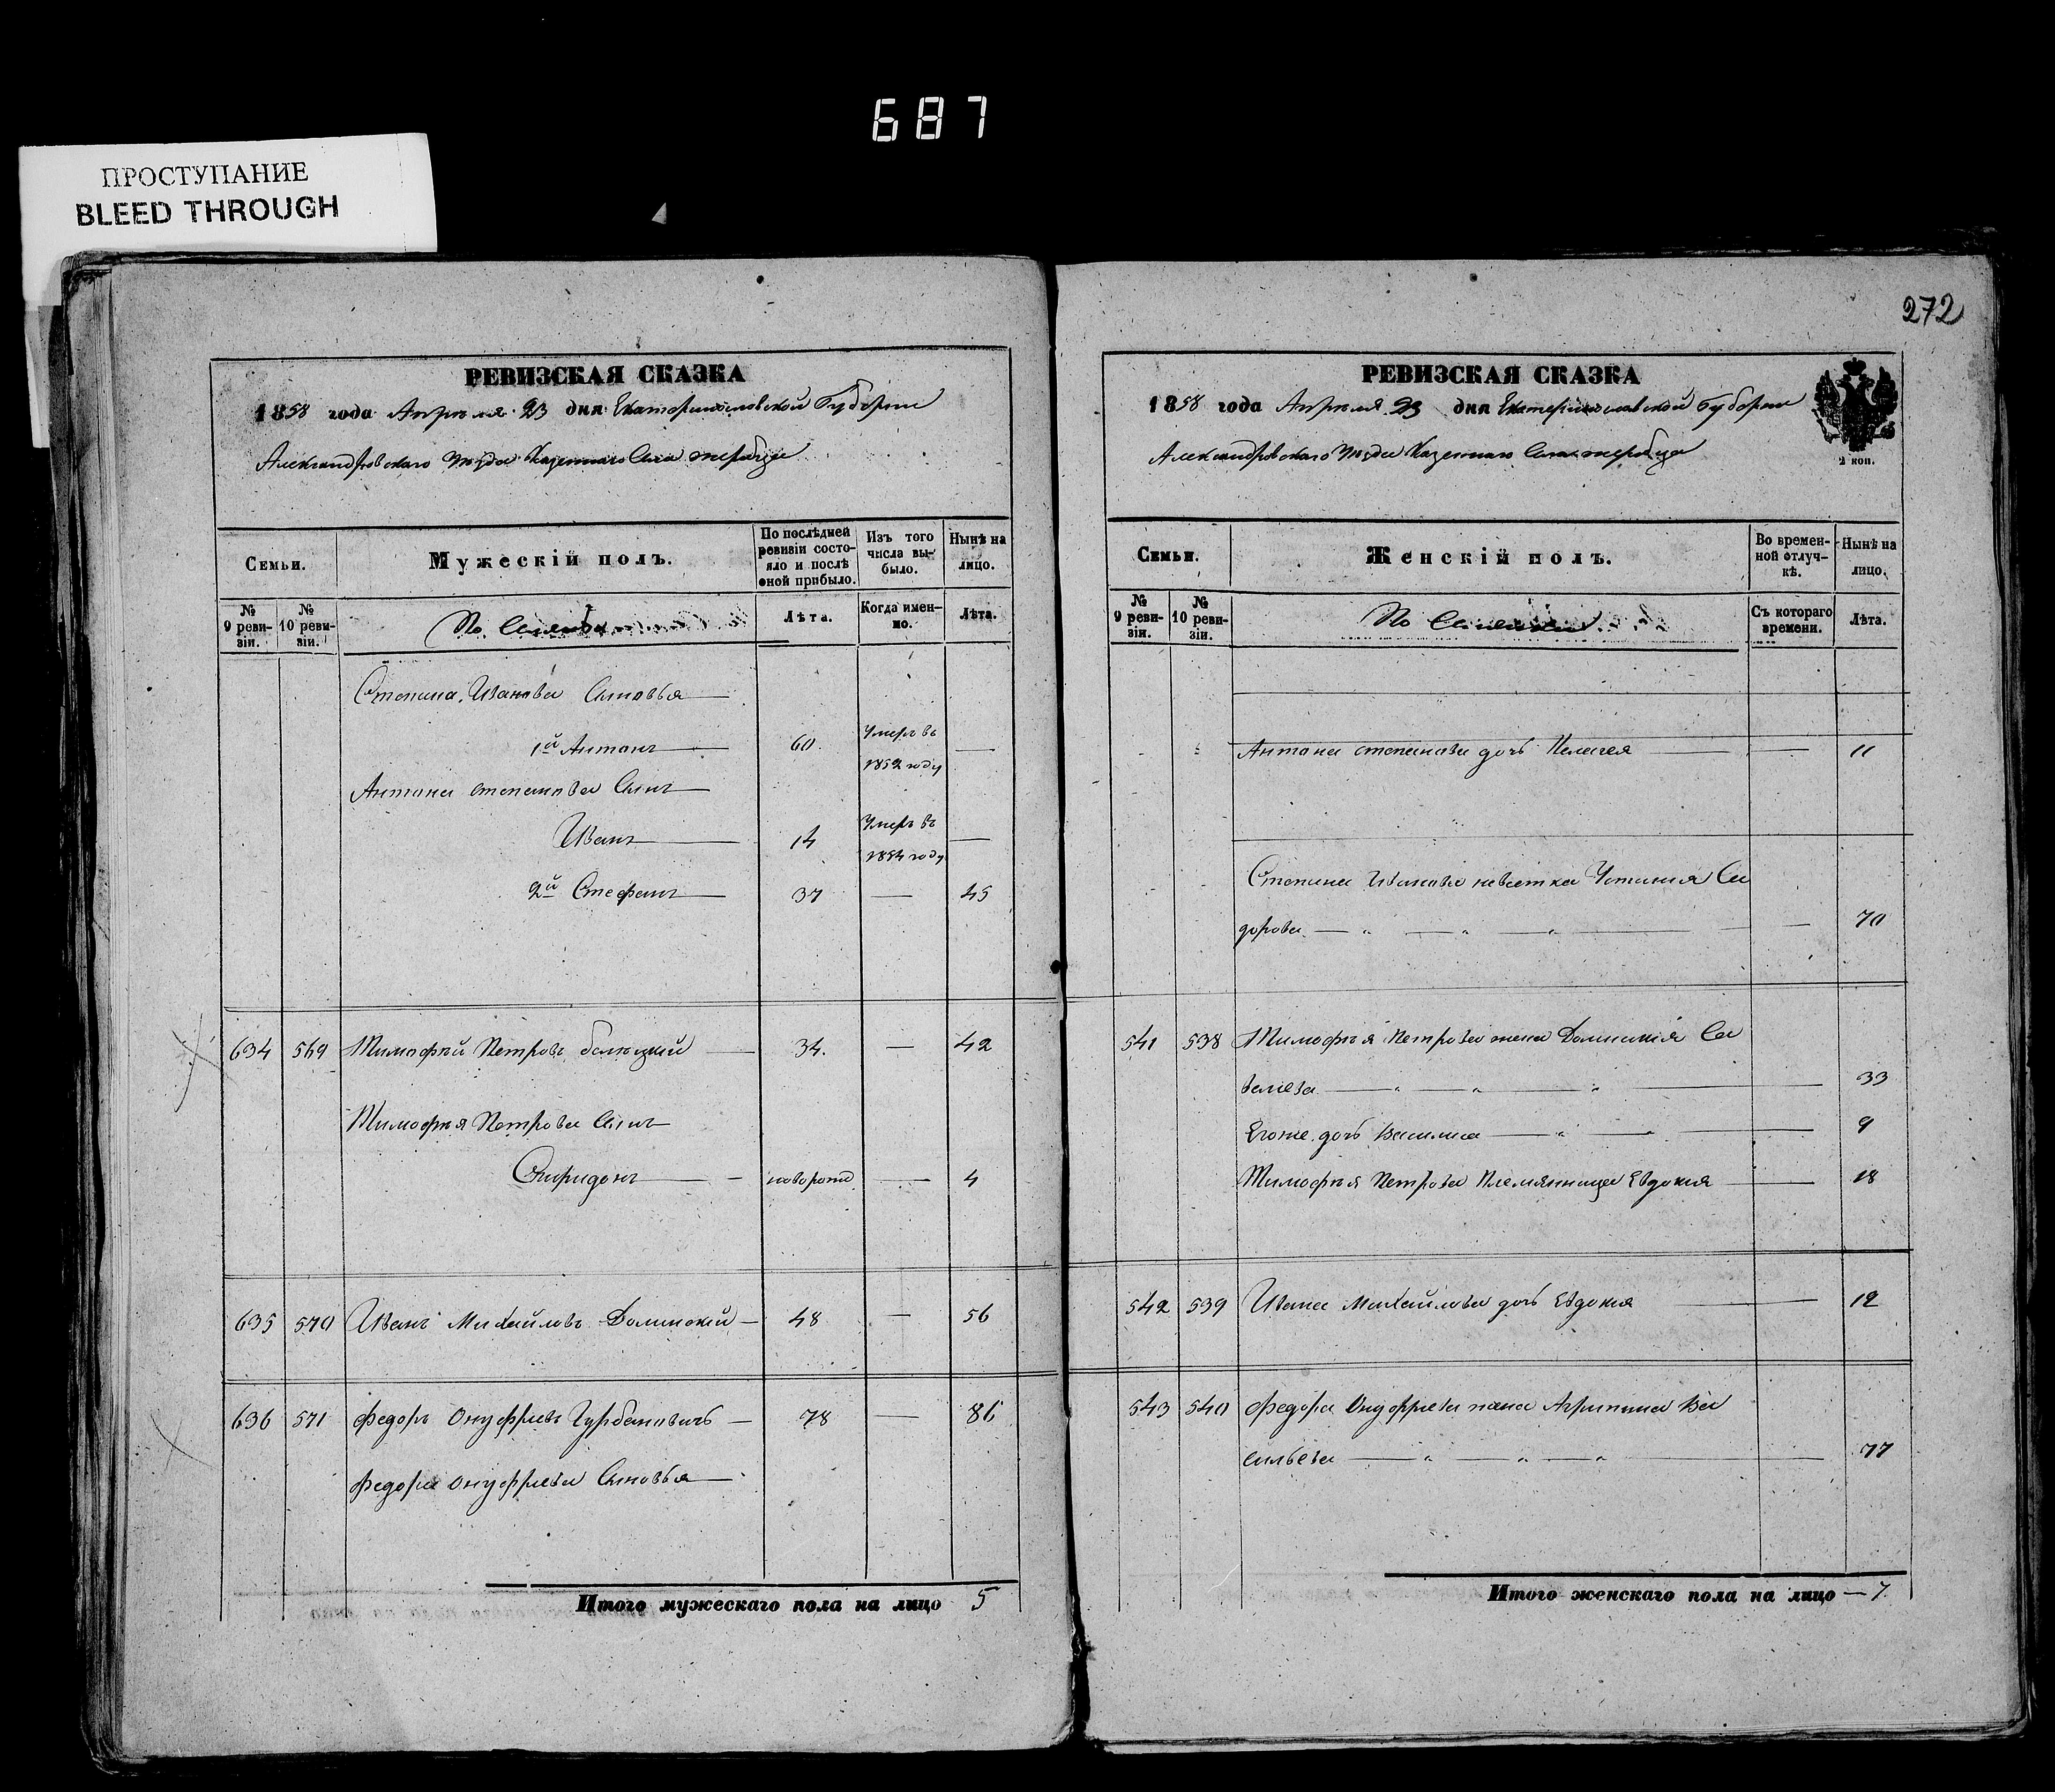 687
ПРОСТУПАНИЕ
BLEED THROUGH
272
РЕВИЗСКАЯ СКАЗКА
1858 года Апрѣля 23 дня Екатеринославской Губернии
Александровскаго Уѣзда Казеннаго Села Жеребца
Семьи.
Мужескій полъ.
По послѣдней ревизіи состояло и послѣ оной прибыло.
Изъ того числа выбыло.
Нынѣ на лицо.
№ 9 ревизіи.
№ 10 ревизіи.
По
Лѣта.
Когда именно.
Лѣта.
Степана Иванова Сыновья
1й Антонъ 60 Умеръ въ 1852 году
Антона Степанова Сынъ
Иванъ 14 Умеръ въ 1854 году
2й Стефанъ 37 — 45
634 569 Тимофѣй Петровъ 34. — 42
Тимофѣя Петрова Сынъ
Спиридонъ — новорожд — 4
635 570 Иванъ Михайловъ Долинскій — 48 — 56
636 571 Федоръ Онуфріевъ Гурбановичъ — 78 — 86
Федора Онуфріева Сыновья —
Итого мужескаго пола на лицо 5
РЕВИЗСКАЯ СКАЗКА
1858 года Апрѣля 23 дня Екатеринославской Губернии
Александровскаго Уѣзда Казеннаго Села Жеребца
2 коп.
Семьи.
Женскій полъ.
Во временной отлучкѣ.
Нынѣ на лицо.
№ 9 ревизіи.
№ 10 ревизіи.
По
Съ котораго времени.
Лѣта.
Антона Степанова дочь Пелагея — 11
Степана Иванова невѣстка Устинія Си
дорова — 70
541 538 Тимофѣя Петрова жена Домникія Са
велева — 33
Егоже дочь Василиса — 9
Тимофѣя Петрова Племянница Евдокия — 18
542 539 Ивана Михайлова дочь Евдокия — 12
543 540 Федора Онуфріева жена Агрипина Ва
сильева — 77
Итого женскаго пола на лицо — 7.